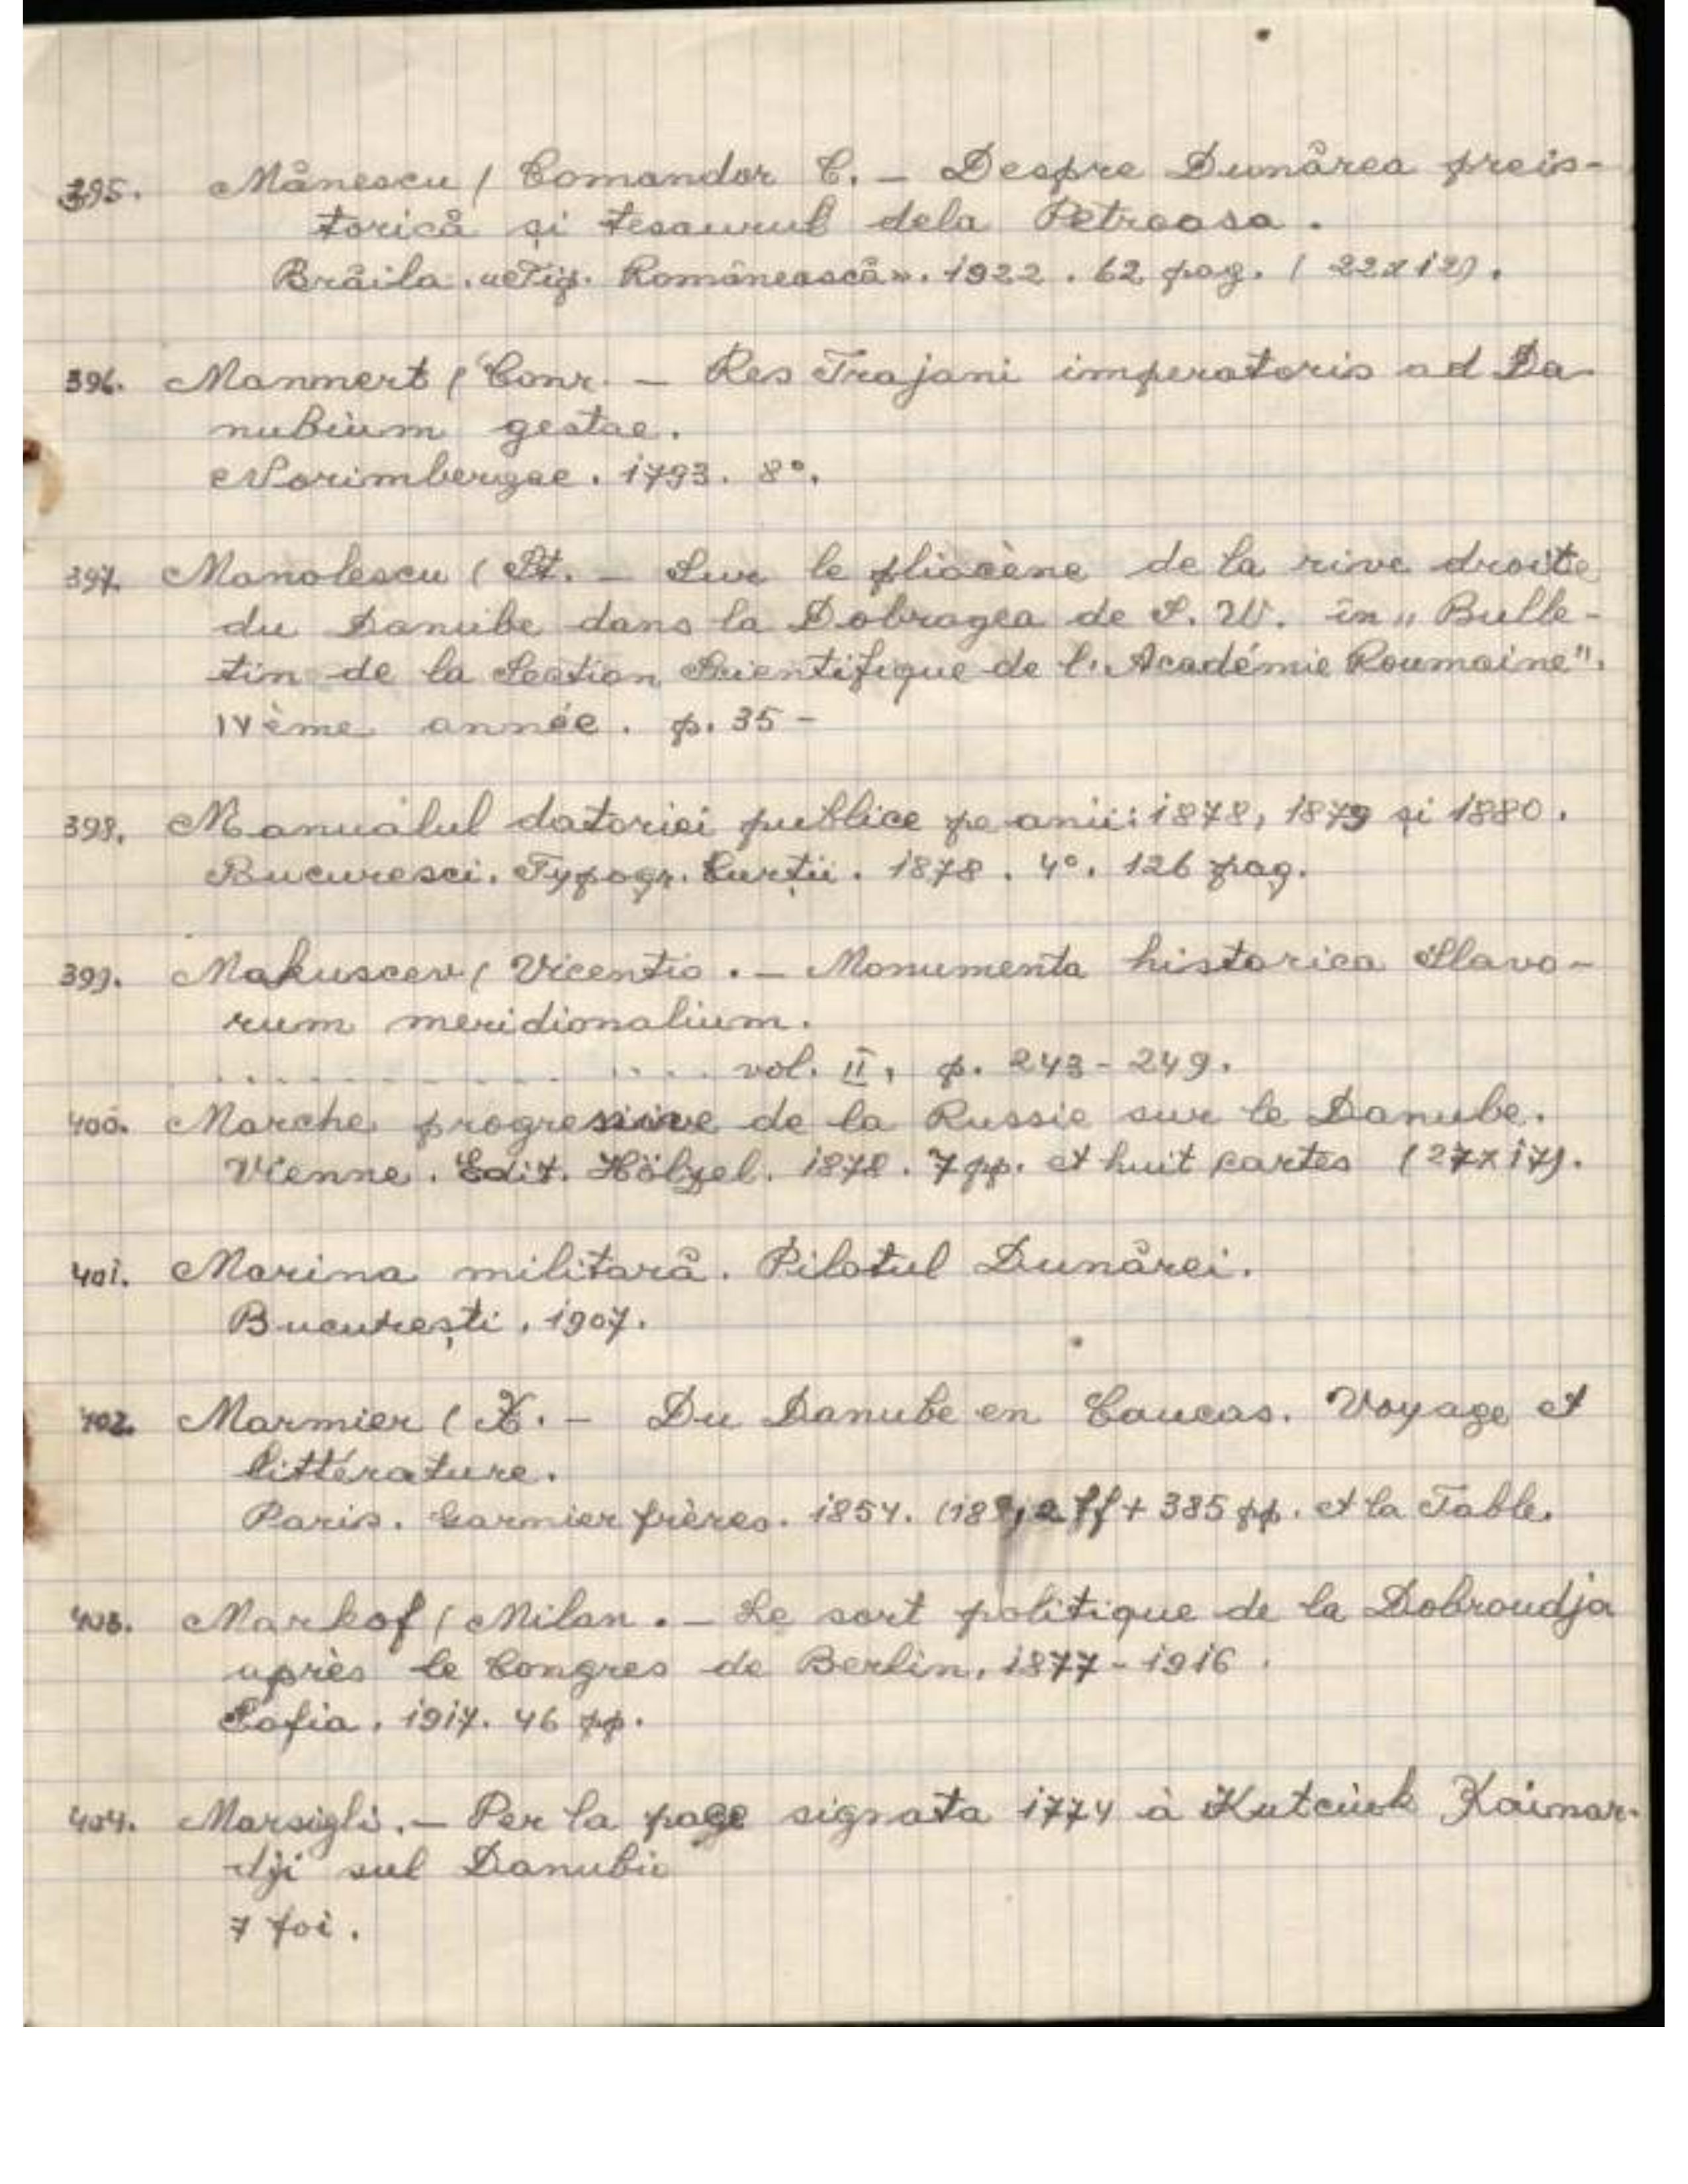 395. Mănescu / Comandor C. — Despre Dunărea preis-
torică și tesaurul dela Petroasa.
Brăila. «Tip. Românească». 1922. 62 pag. (22x12).
396. Mannert / Conr. — Res Trajani imperatoris ad Da-
nubium gestae.
Norimbergae. 1793. 8°.
397. Manolescu (St. — Sur le pliocène de la rive droite
du Danube dans la Dobrogea de S. W. în „Bulle-
tin de la Section Scientifique de l'Académie Roumaine".
IVème année. p. 35 -
398. Manualul datoriei publice pe anii: 1878, 1879 și 1880.
Bucuresci. Typogr. Curții. 1878. 4°. 126 pag.
399. Makuscev / Vicentio. — Monumenta historica Slavo-
rum meridionalium.
. . . . . . . . . . . . . . . . vol. II, p. 243-249.
400. Marche progressive de la Russie sur le Danube.
Vienne. Edit. Hölzel. 1878. 7 pp. et huit cartes (27x17).
401. Marina militară. Pilotul Dunărei.
București, 1907.
402. Marmier (X. — Du Danube en Caucas. Voyage et
littérature.
Paris. Garnier frères. 1854. 2 ff + 385 pp. et la Table.
403. Markof / Milan. — Le sort politique de la Dobroudja
après le Congres de Berlin, 1877-1916.
Sofia. 1917. 46 pp.
404. Marsigli. — Per la pace signata 1774 à Kutciuk Kaimar-
dji sul Danubio
7 foi.